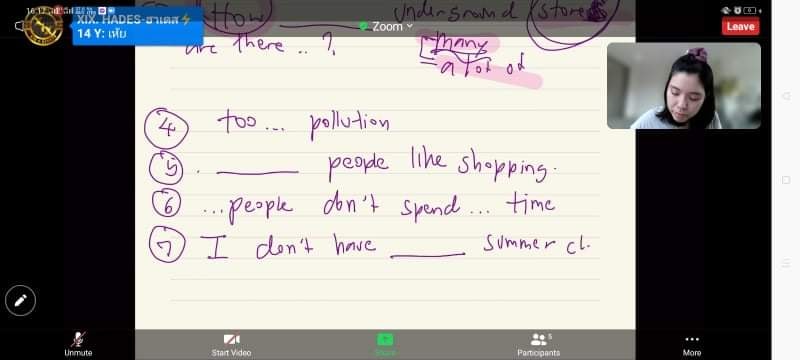 How _____ underground stores
are there .. ? many
a lot of
Zoom
Leave
XIX. HADES-ฮาเดส⚡
14 Y: เหี้ย
④ too... pollution
⑤ . _____ people like shopping.
⑥ ...people don't spend... time
⑦ I don't have _____ summer cl.
Unmute Start Video Share Participants 5 More